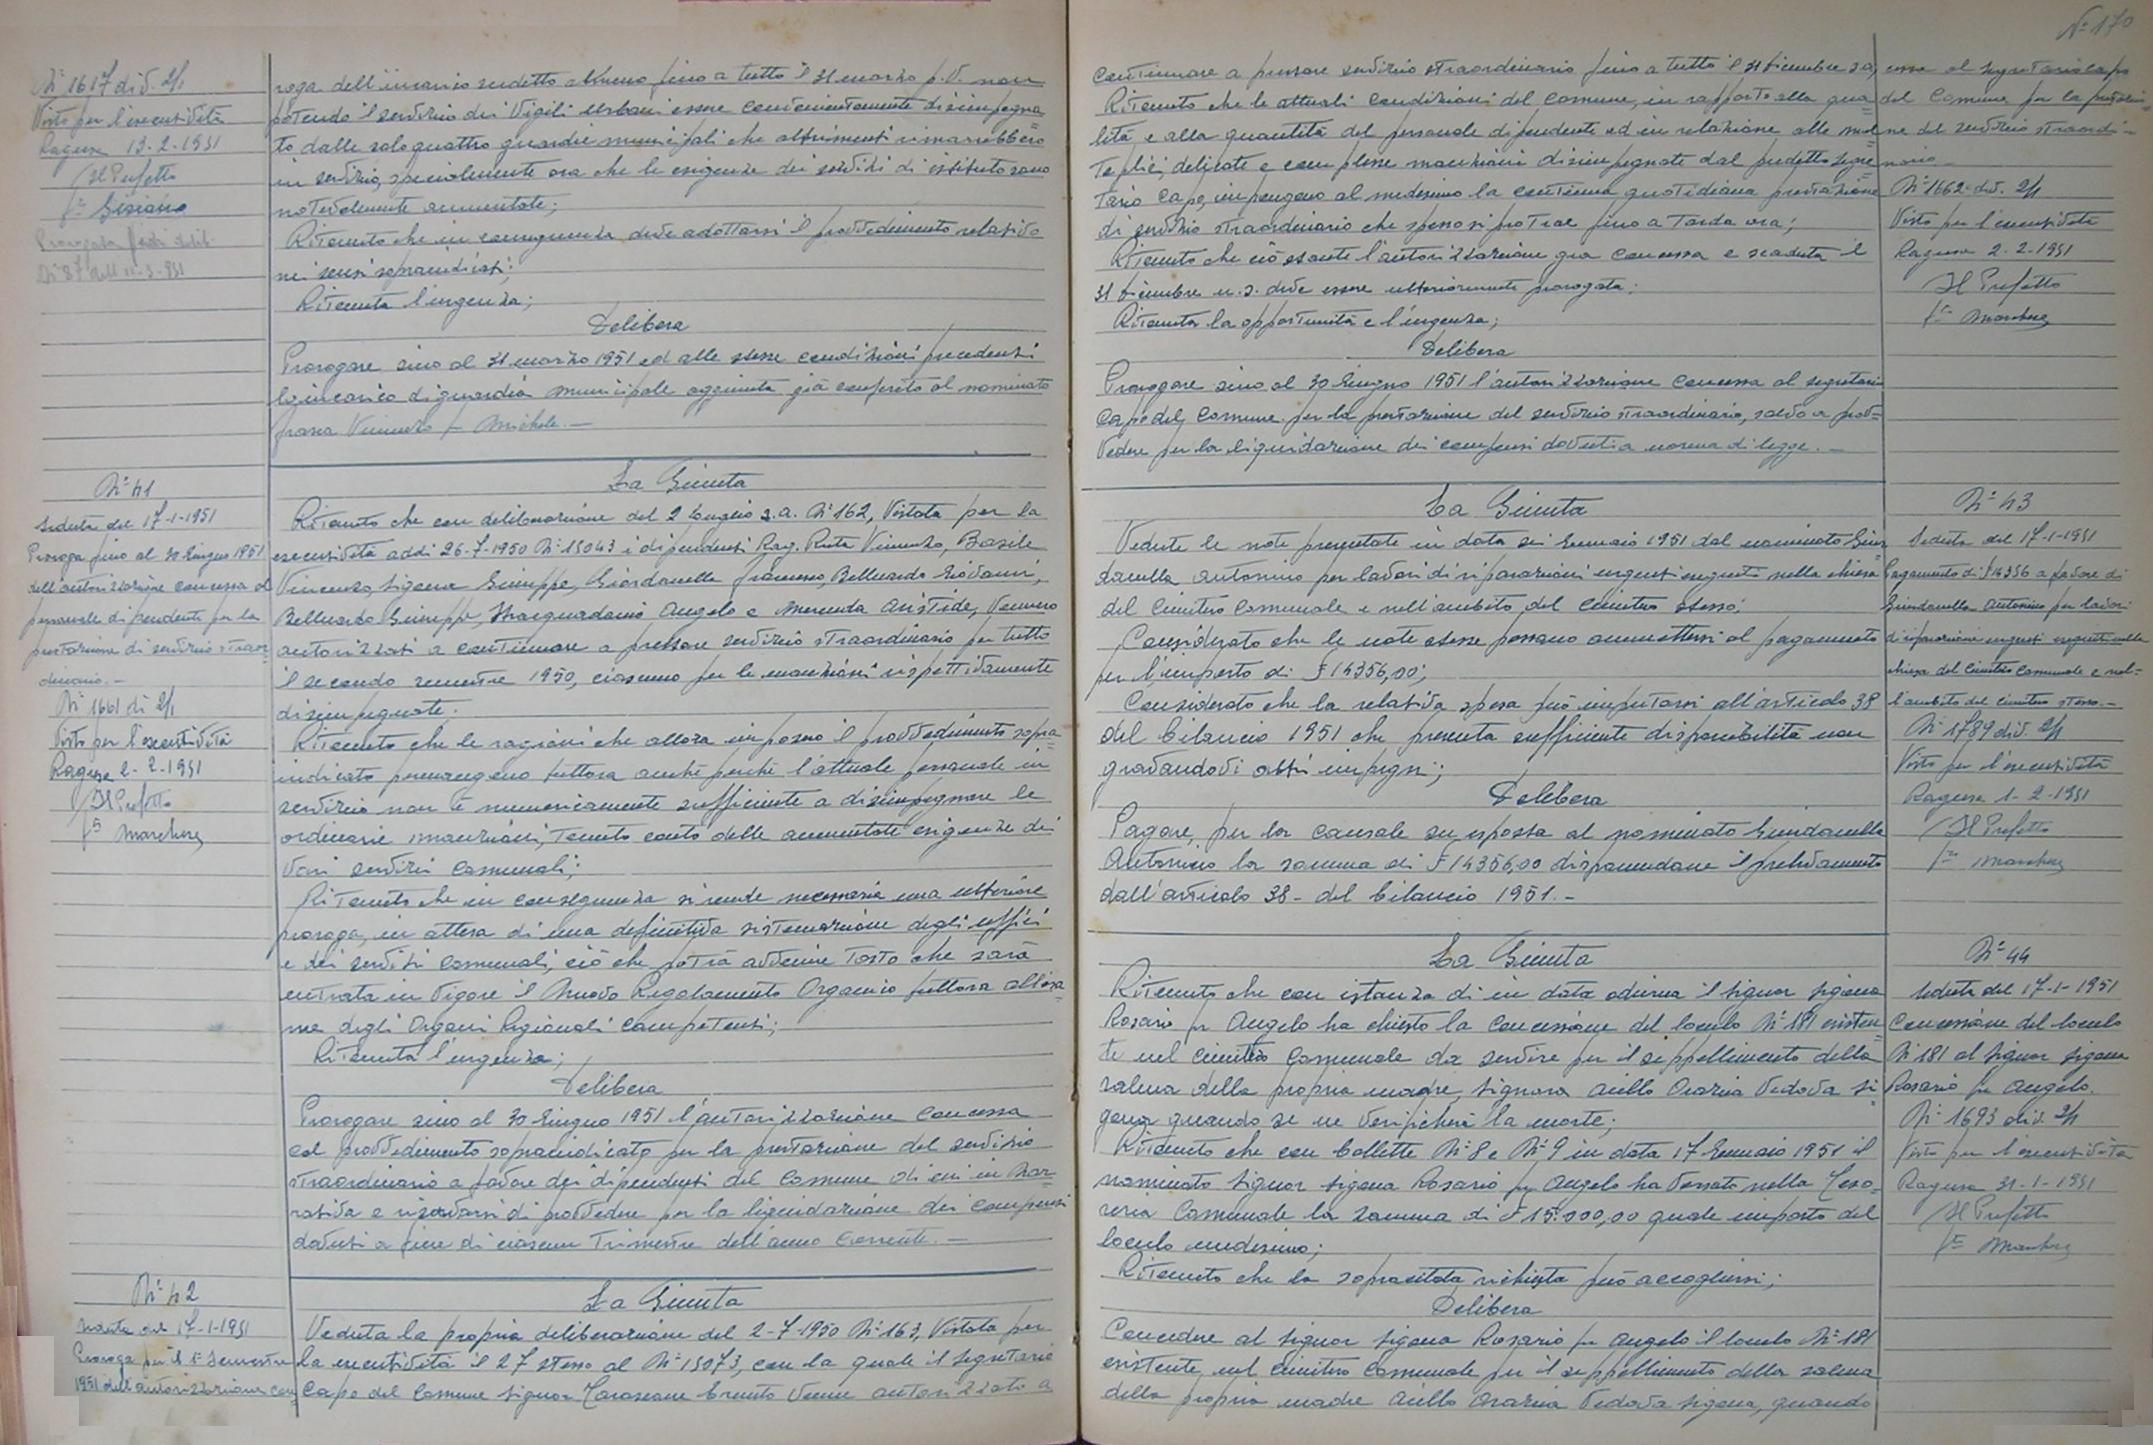 N° 1617 div. 2/1
Visto per l'esecutività
Ragusa 13-2-1951
Il Prefetto
Prorogata
Di 87 dell' 11-3-951
N° 41
Seduta del 17-1-1951
Proroga fino al 30 Giugno 1951
dell'autorizzazione concessa al
personale dipendente per la
prestazione di servizio straor=
dinario.-
N° 1661 di 2/1
Visto per l'esecutività
Ragusa 2-2-1951
Il Prefetto
N° 42
Seduta del 17-1-1951
Proroga per il 1° Semestre
1951 dell'autorizzazione con
roga dell'incarico suddetto almeno fino a tutto il 31 marzo p.v. non
potendo il servizio dei Vigili Urbani essere convenientemente disimpegna
to dalle sole quattro guardie municipali che altrimenti rimarrebbero
in servizio, specialmente ora che le esigenze dei servizi di istituto sono
notevolmente aumentate;
Ritenuto che in conseguenza deve adottarsi il provvedimento relativo
nei sensi sopraindicati;
Ritenuta l'urgenza;
Delibera
Prorogare sino al 31 marzo 1951 ed alle stesse condizioni precedenti
l'incarico di guardia municipale aggiunta già conferito al nominato
Vincenzo fu Michele.-
La Giunta
Ritenuto che con deliberazione del 2 Luglio s.a. N° 162, Vistata per la
esecutività addì 26-7-1950 N° 15043 i dipendenti Rag. Ruta Vincenzo, Basile
Vincenzo, Sigona Giuseppe, Giordanella Francesco, Belluardo Giovanni,
Belluardo Giuseppe, Stracquadanio Angelo e Merenda Aristide, Vennero
autorizzati a continuare a prestare servizio straordinario per tutto
il secondo semestre 1950, ciascuno per le mansioni rispettivamente
disimpegnate;
Ritenuto che le ragioni che allora imposero il provvedimento sopra=
indicato permangono tuttora anche perché l'attuale personale in
servizio non è numericamente sufficiente a disimpegnare le
ordinarie mansioni, tenuto conto delle aumentate esigenze dei
vari servizi comunali;
Ritenuto che in conseguenza si rende necessaria una ulteriore
proroga, in attesa di una definitiva sistemazione degli uffici
e dei servizi comunali, ciò che potrà avvenire tosto che sarà
entrata in vigore il Nuovo Regolamento Organico tuttora all'esa=
me degli Organi Regionali competenti;
Ritenuta l'urgenza;
Delibera
Prorogare sino al 30 Giugno 1951 l'autorizzazione concessa
col provvedimento sopraindicato per la prestazione del servizio
straordinario a favore dei dipendenti del Comune di cui in nar=
rativa e riservarsi di provvedere per la liquidazione dei compensi
dovuti a fine di ciascun trimestre dell'anno corrente.-
La Giunta
Veduta la propria deliberazione del 2-7-1950 N° 163, Vistata per
la esecutività il 27 stesso al N° 15073, con la quale il Segretario
Capo del Comune Signor Venne autorizzato a
N° 170
continuare a prestare servizio straordinario fino a tutto il 31 Dicembre s.a;
Ritenuto che le attuali condizioni del Comune, in rapporto alla qua=
lità e alla quantità del personale dipendente ed in relazione alle mol=
teplici, delicate e complesse mansioni disimpegnate dal predetto Segre=
tario Capo, impongono al medesimo la continua quotidiana prestazione
di servizio straordinario che spesso si protrae fino a tarda ora;
Ritenuto che ciò stante l'autorizzazione già concessa e scaduta il
31 Dicembre u.s. deve essere ulteriormente prorogata;
Ritenuta la opportunità e l'urgenza;
Delibera
Prorogare sino al 30 Giugno 1951 l'autorizzazione concessa al segretario
capo del Comune per la prestazione del servizio straordinario, salvo a prov=
vedere per la liquidazione dei compensi dovuti a norma di legge.-
La Giunta
Vedute le note presentate in data sei Gennaio 1951 dal nominato Giun
danella Antonino per lavori di riparazioni urgenti eseguiti nella chiesa
del Cimitero Comunale e nell'ambito del Cimitero stesso;
Considerato che le note stesse possano ammettersi al pagamento
per l'importo di £ 14356,00;
Considerato che la relativa spesa può imputarsi all'articolo 38
del bilancio 1951 che presenta sufficiente disponibilità non
gravandovi altri impegni;
Delibera
Pagare, per la causale su esposta al nominato Giundanella
Antonino la somma di £ 14356,00 disponendone il prelevamento
dall'articolo 38- del bilancio 1951.-
La Giunta
Ritenuto che con istanza di in data odierna il Signor Sigona
Rosario fu Angelo ha chiesto la concessione del loculo N° 181 esisten
te nel cimitero Comunale da servire per il seppellimento della
salma della propria madre, Signora Aiello Orazia Vedova Si
gona quando se ne verificherà la morte;
Ritenuto che con bollette N° 8 e N° 9 in data 17 Gennaio 1951 il
nominato Signor Sigona Rosario fu Angelo ha versato nella Teso=
reria Comunale la somma di £ 15.000,00 quale importo del
loculo medesimo;
Ritenuto che la sopracitata richiesta può accogliersi;
Delibera
Concedere al Signor Sigona Rosario fu Angelo il loculo N° 181
esistente nel Cimitero Comunale per il seppellimento della salma
della propria madre Aiello Orazia Vedova Sigona, quando
cessa al Segretario capo
del Comune per la prestazio=
ne del servizio straordi=
nario-
N° 1662 div. 2/1
Visto per l'esecutività
Ragusa 2-2-1951
Il Prefetto
N° 43
Seduta del 17-1-1951
Pagamento di £ 14356 a favore di
Giundanella Antonino per lavori
di riparazione urgenti eseguiti nella
chiesa del Cimitero Comunale e nel=
l'ambito del cimitero stesso.-
N° 1789 div. 2/1
Visto per l'esecutività
Ragusa 1-2-1951
Il Prefetto
N° 44
Seduta del 17-1-1951
Concessione del loculo
N° 181 al Signor Sigona
Rosario fu Angelo.
N° 1693 div. 2/1
Visto per l'esecutività
Ragusa 31-1-1951
Il Prefetto